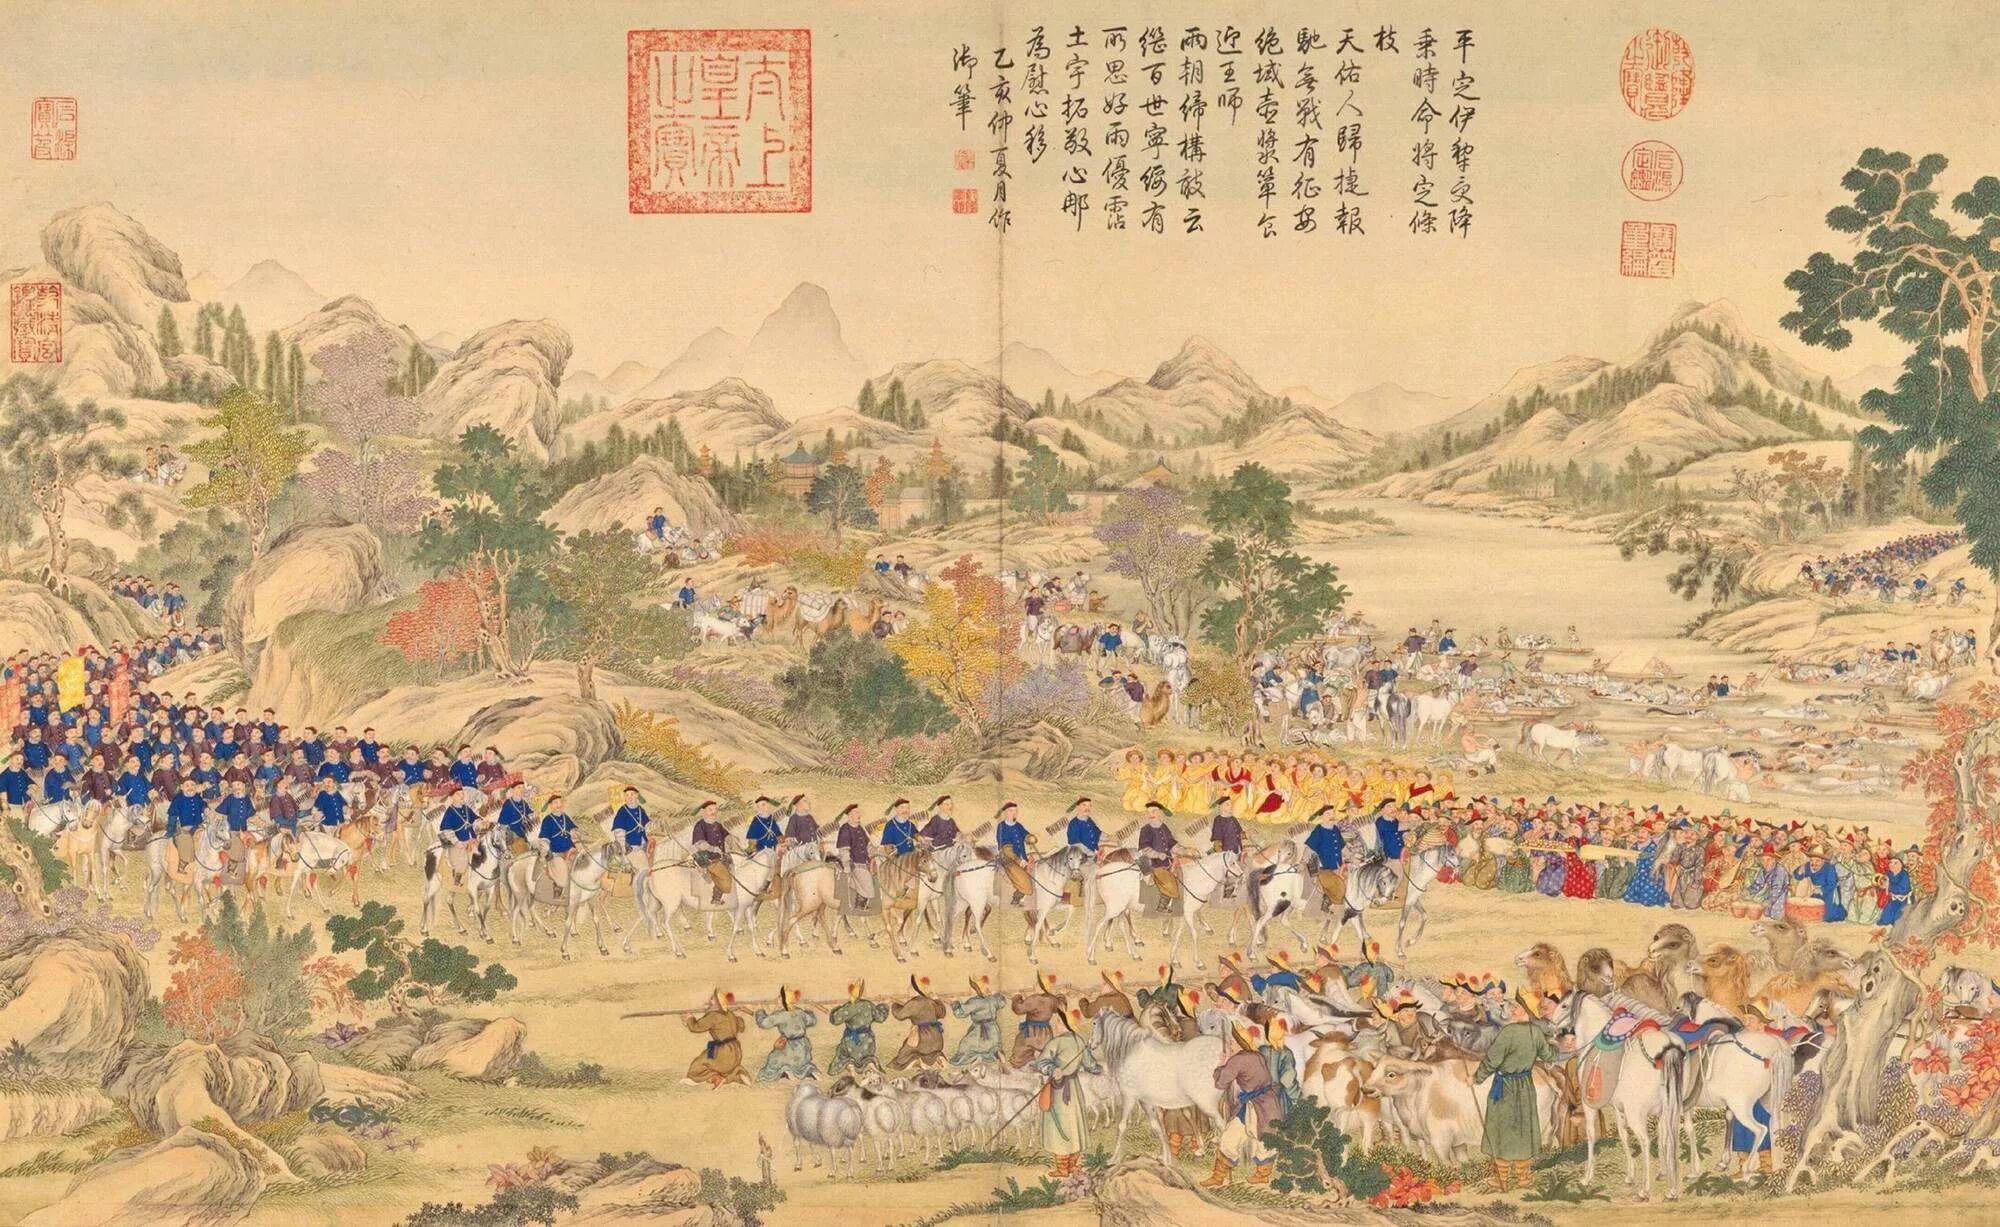 乾隆御覽之寶
石渠定鑑
寶笈重編
平定伊犂受降
乘時命將定條
枝
天佑人歸捷報
馳無戰有征安
絶域壺漿簞食
迎王師
兩朝締構敢云
繼百世寧綏有
所思好雨優霑
土宇拓敬心那
為慰心移
乙亥仲夏月作
御筆
太上皇帝之寶
石渠寶笈
乾清宮鑒藏寶